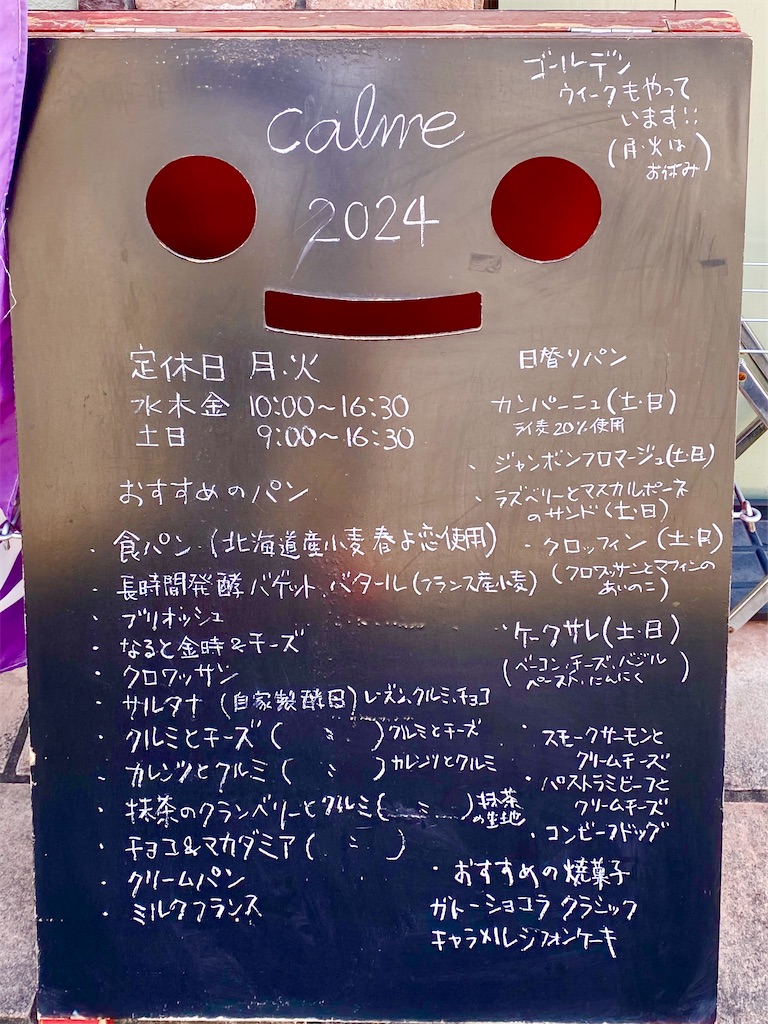 calme
2024
ゴールデン
ウィークもやって
います!!
(月・火は
お休み)
定休日 月・火
水木金 10:00~16:30
土日 9:00~16:30
おすすめのパン
・食パン (北海道産小麦春よ恋使用)
・長時間発酵バゲット、バタール(フランス産小麦)
・ブリオッシュ
・なると金時&チーズ
・クロワッサン
・サルタナ (自家製酵母)レーズン、クルミ、チョコ
・クルミとチーズ ( 〃 )クルミとチーズ
・カレンツとクルミ ( 〃 )カレンツとクルミ
・抹茶のクランベリーとクルミ(…〃…)抹茶
の生地
・チョコ&マカダミア ( 〃 )
・クリームパン
・ミルクフランス
日替りパン
カンパーニュ(土・日)
ライ麦20%使用
・ジャンボンフロマージュ(土・日)
・ラズベリーとマスカルポーネ
のサンド(土・日)
・クロッフィン (土・日)
(クロワッサンとマフィンの
あいのこ)
・ケークサレ(土・日)
(ベーコン、チーズ、バジル
ペースト、にんにく )
・スモークサーモンと
クリームチーズ
・パストラミビーフと
クリームチーズ
・コンビーフドッグ
・おすすめの焼菓子
ガトーショコラ クラシック
キャラメルシフォンケーキ